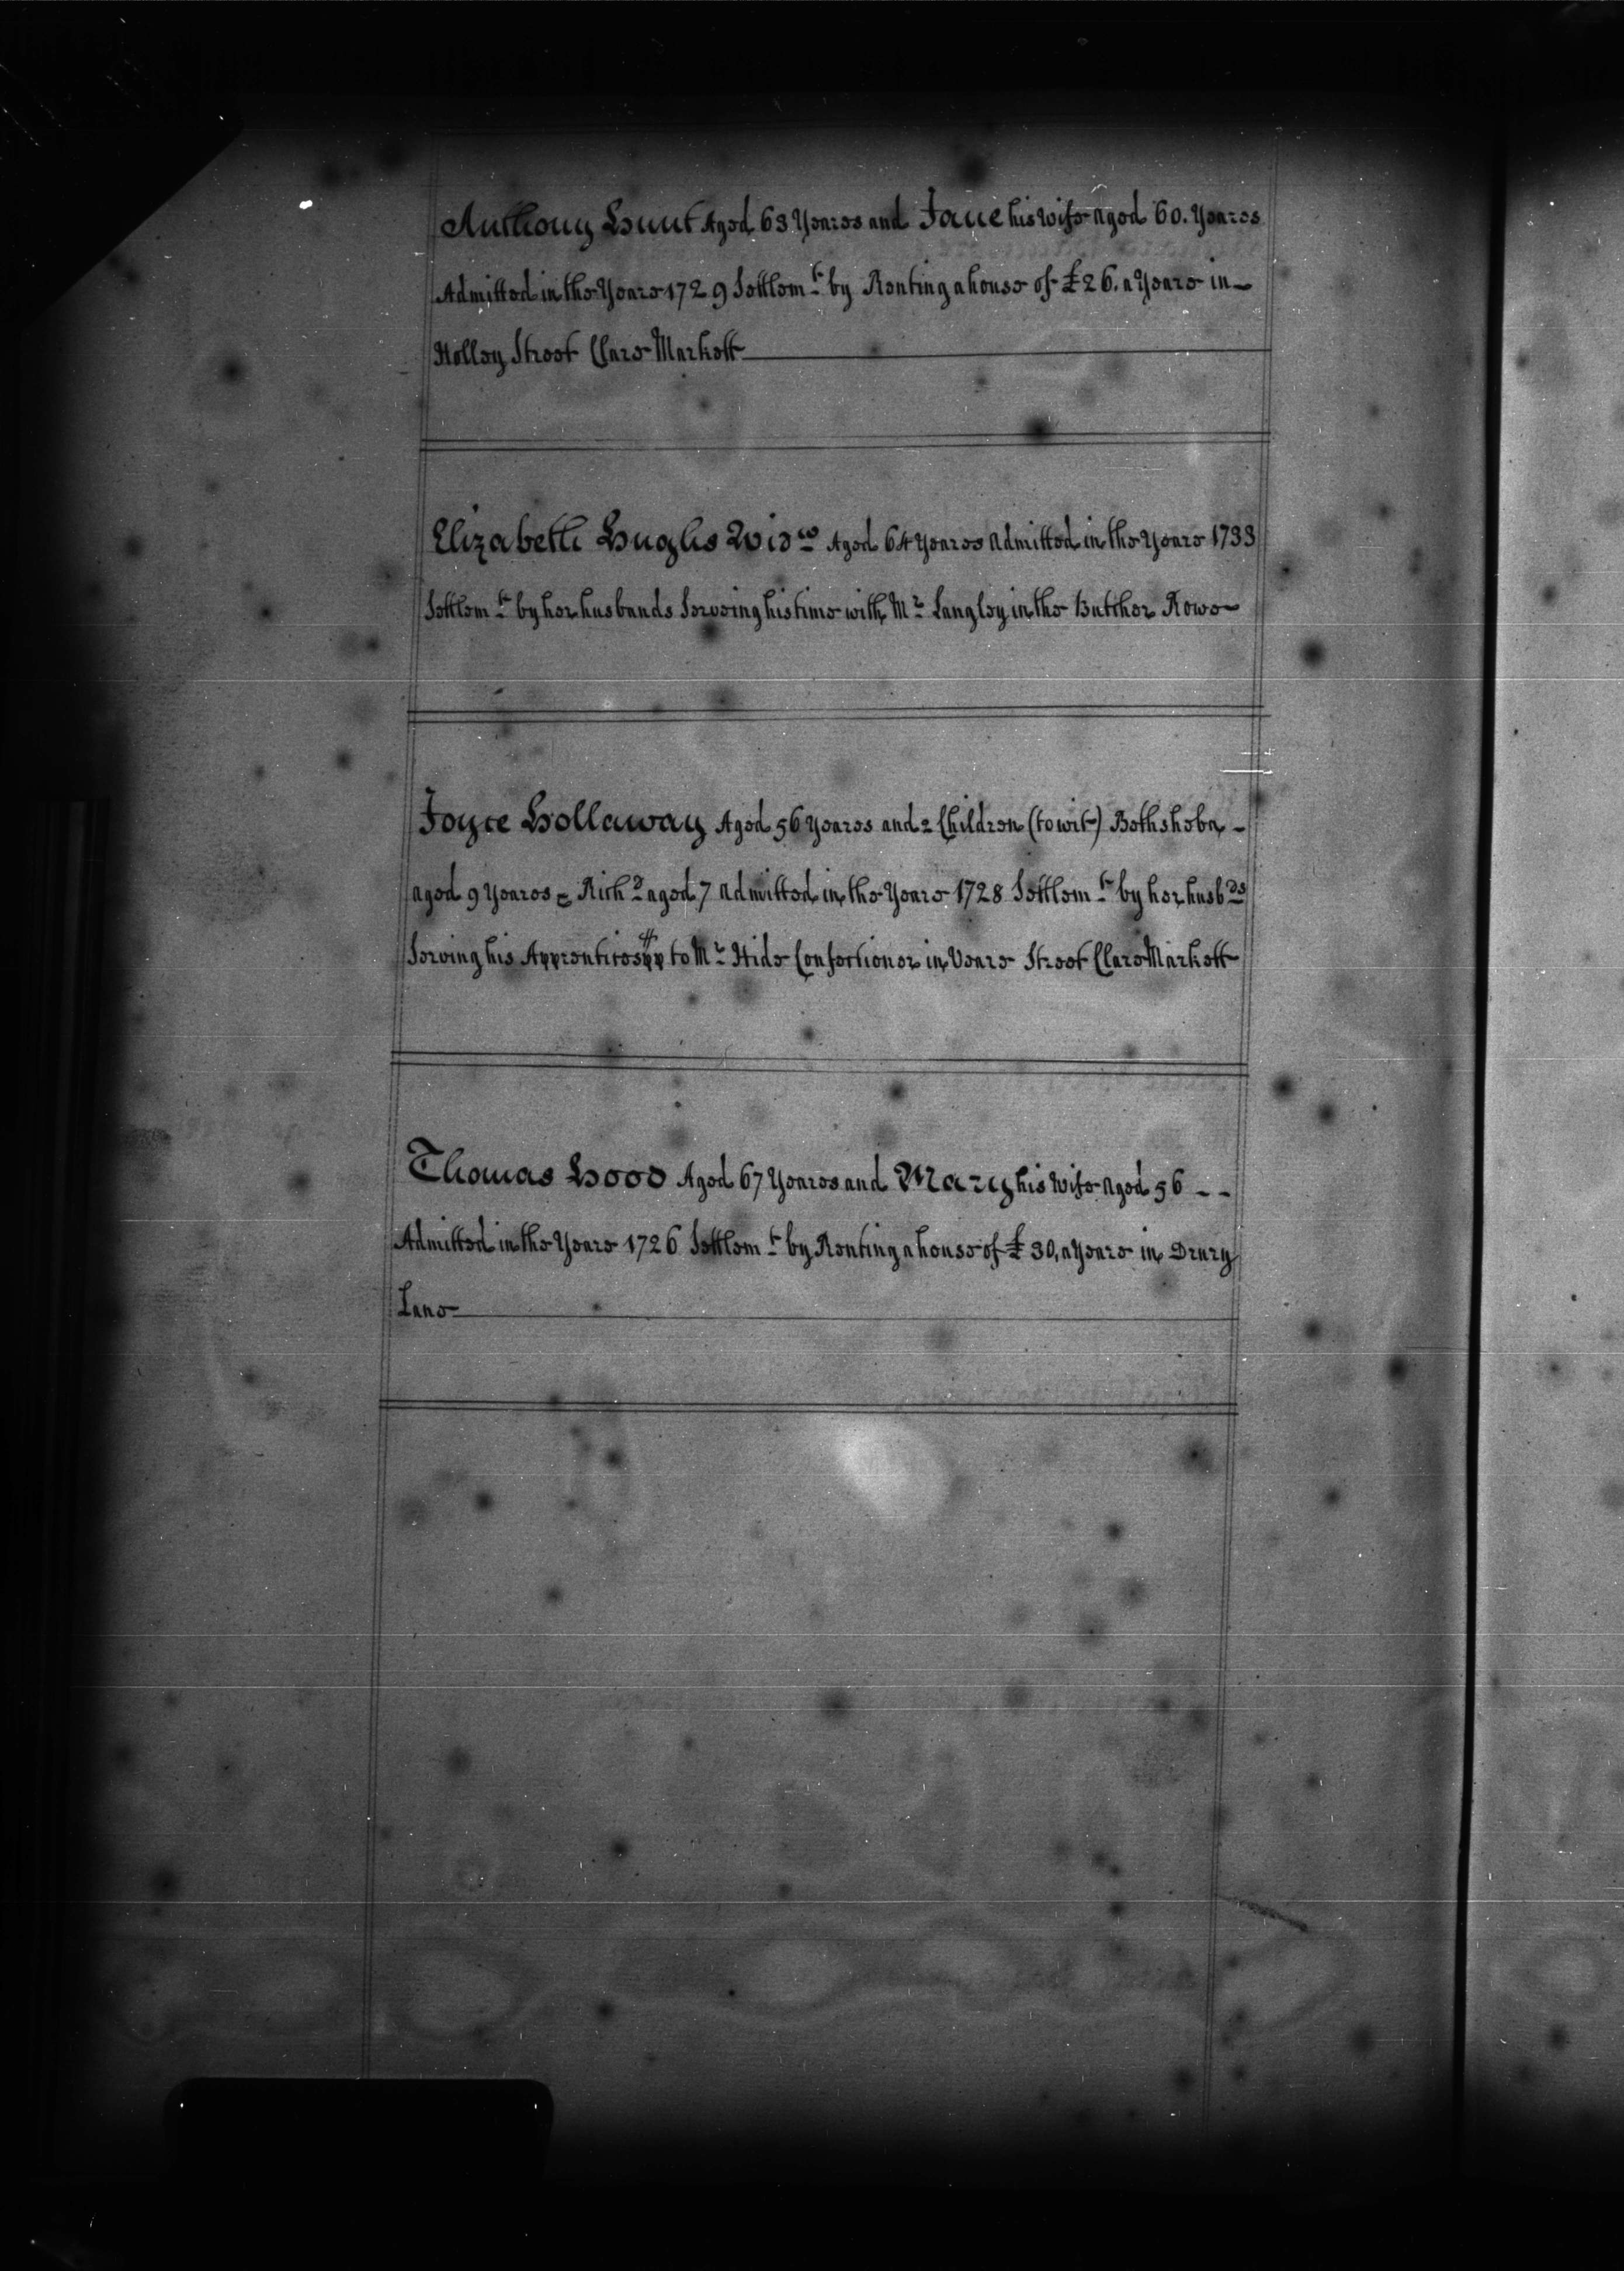 Anthony Hunt Aged 63 Yeares and Jane his wife aged 60. Yeares
Admitted in the Yeare 1729 Settlemt by Renting a house of £26. a Yeare in
Holley Street Clare Markett
Elizabeth Hughs Widw Aged 64 Yeares admitted in the Yeare 1733
Settlemt by her husbands Serveing his time with Mr Langley in the Butcher Rowe
Joyce Hollaway Aged 56 Yeares and 2 Children (to wit) Bethsheba
aged 9 Yeares & Richd aged 7 admitted in the Yeare 1728 Settlemt by her husbds
Serving his Apprenticespp to Mr Hide Confectioner in Veare Street Clare Markett
Thomas Hood Aged 67 Yeares and Mary his Wife aged 56 - -
Admitted in the Yeare 1726 Settlemt by Renting a house of £30, a Yeare in Drury
Lane